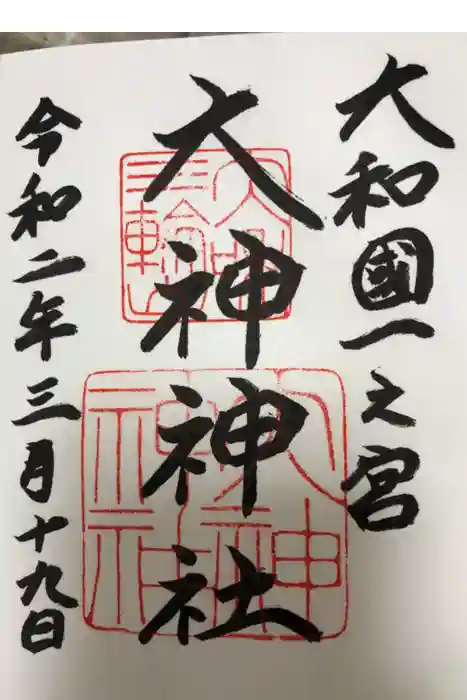 大和國一之宮
大神神社
三輪明神
大神神社
令和二年三月十九日